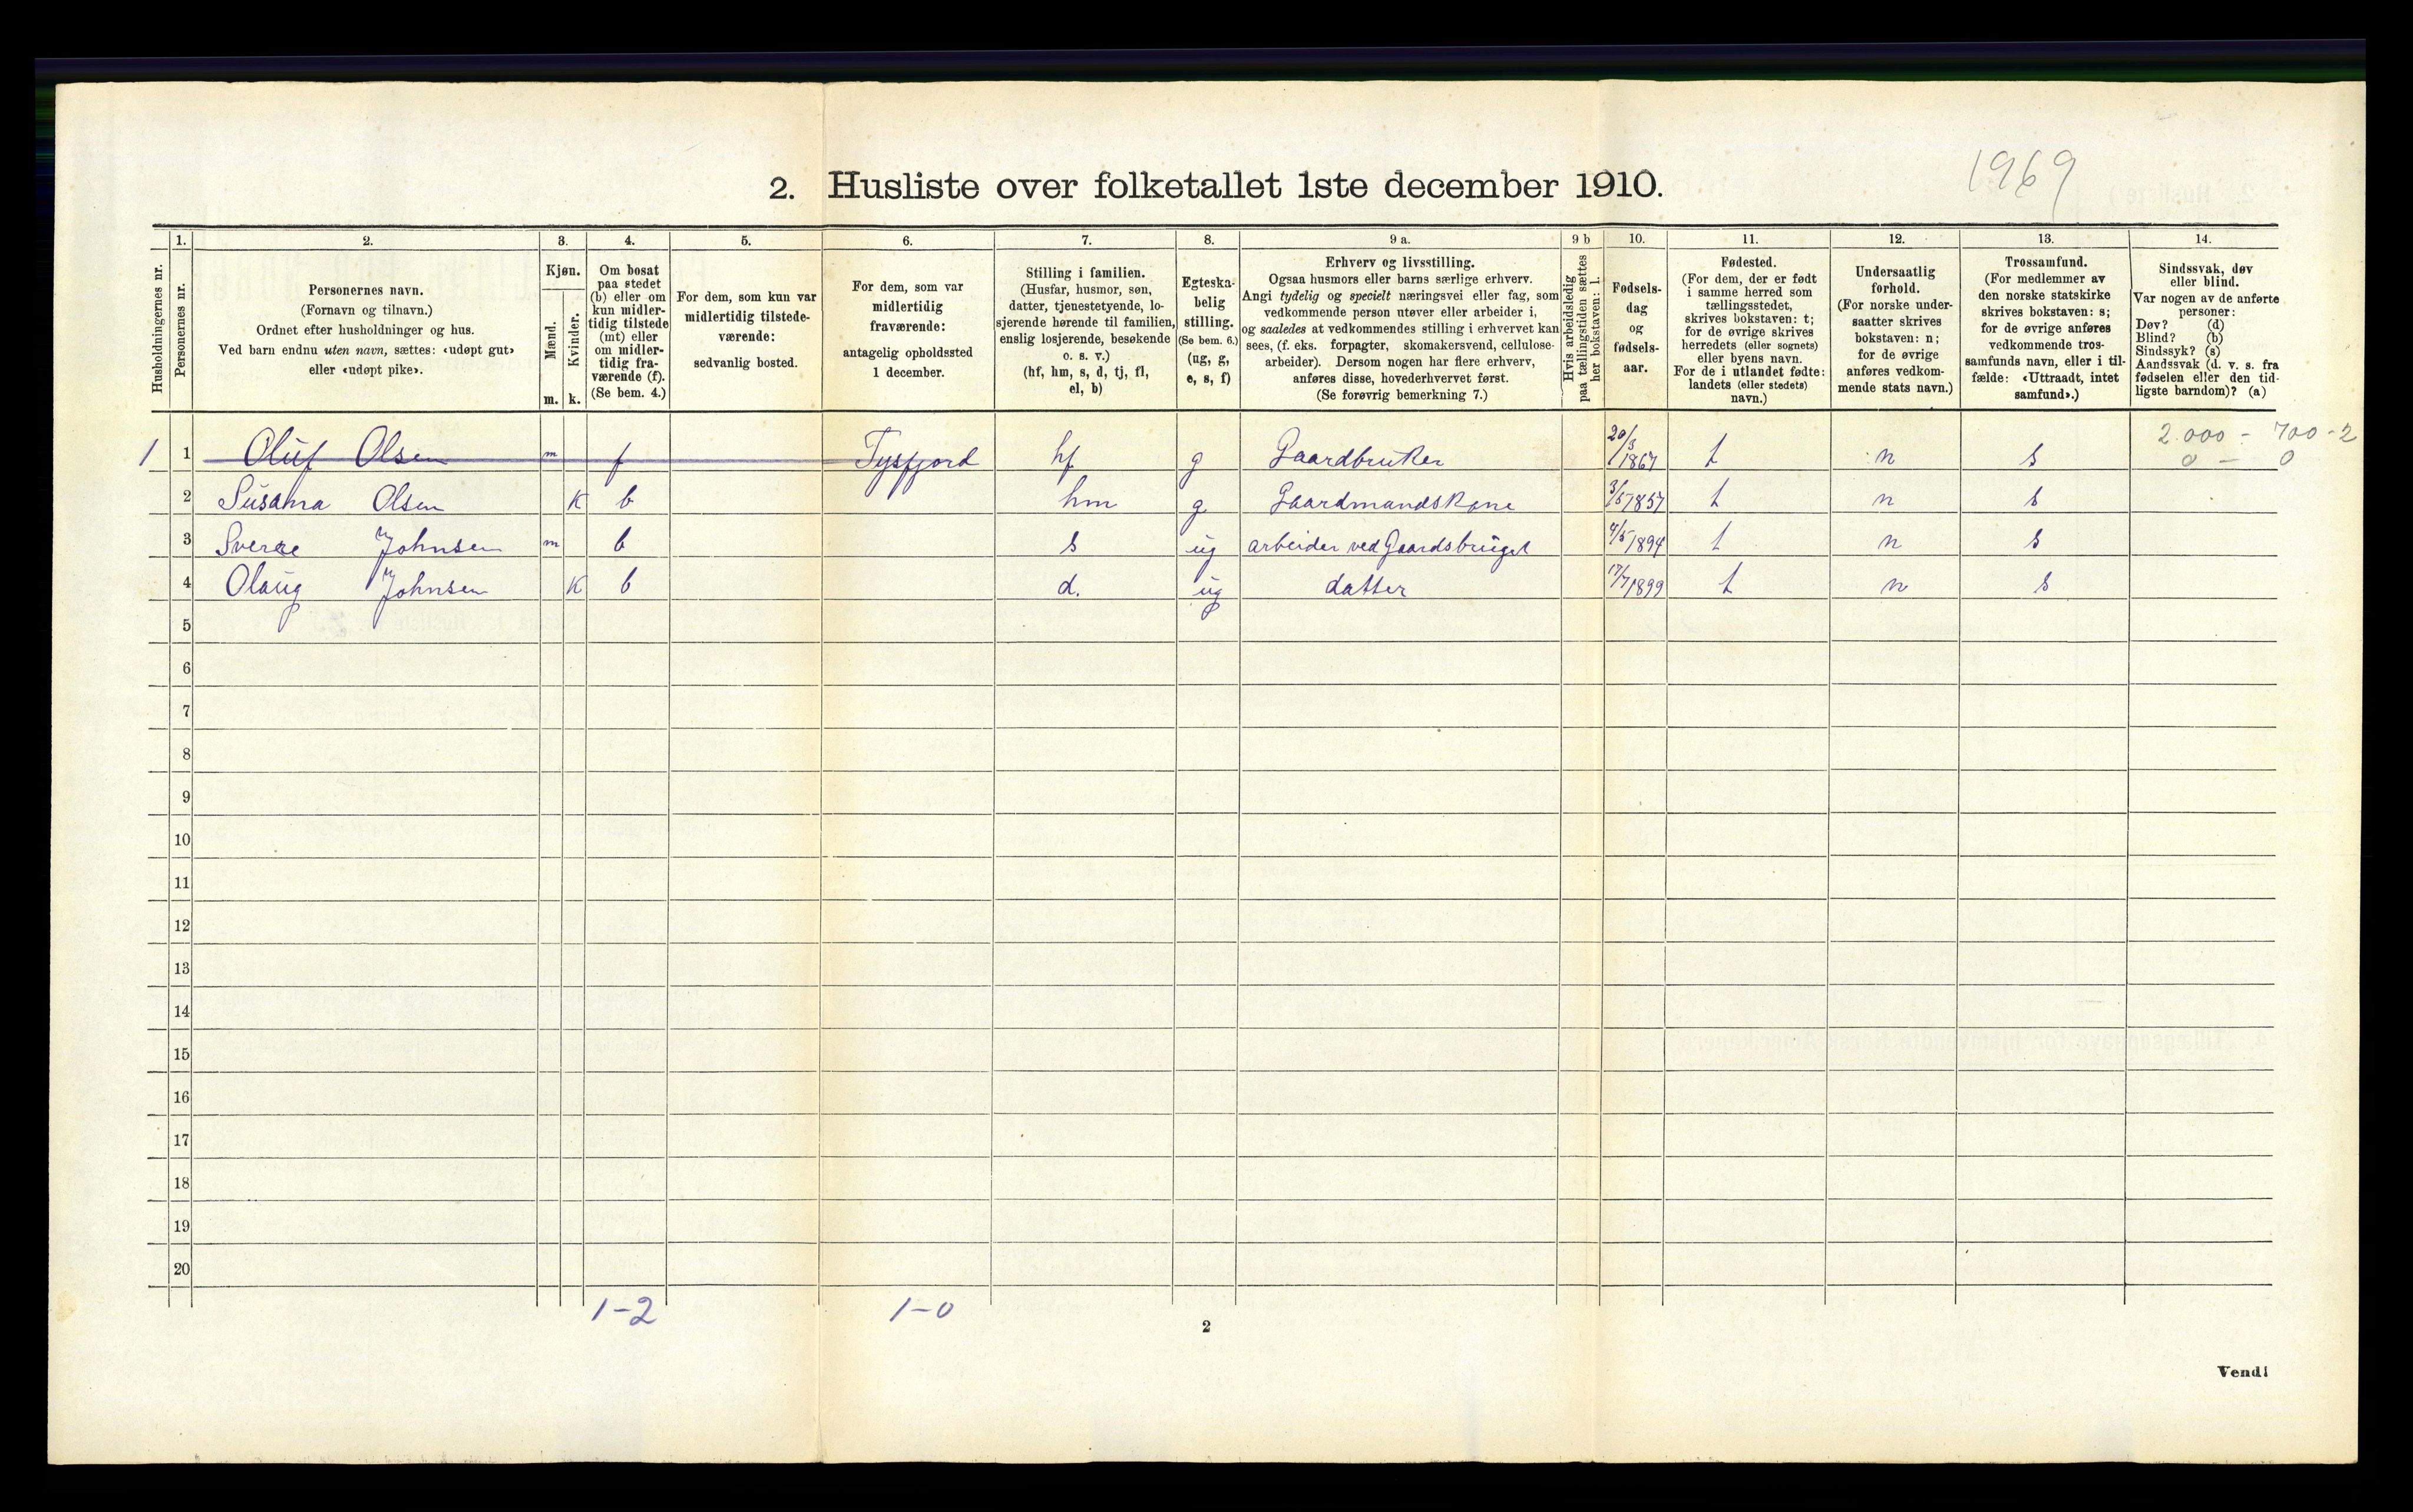 1969
2. Husliste over folketallet 1ste december 1910.
Husholdningernes nr.
1. 2. 3. 4. 5. 6. 7. 8. 9 a. 9 b 10. 11. 12. 13. 14.
Personernes nr.
Personernes navn.
(Fornavn og tilnavn.)
Ordnet efter husholdninger og hus.
Ved barn endnu uten navn, sættes: «udøpt gut»
eller «udøpt pike».
Kjøn.
Mænd.
Kvinder.
m. k.
Om bosat
paa stedet
(b) eller om
kun midler-
tidig tilstede
(mt) eller
om midler-
tidig fra-
værende (f).
(Se bem. 4.)
For dem, som kun var
midlertidig tilstede-
værende:
sedvanlig bosted.
For dem, som var
midlertidig
fraværende:
antagelig opholdssted
1 december.
Stilling i familien.
(Husfar, husmor, søn,
datter, tjenestetyende, lo-
sjerende hørende til familien,
enslig losjerende, besøkende
o. s. v.)
(hf, hm, s, d, tj, fl,
el, b)
Egteska-
belig
stilling.
(Se bem. 6.)
(ug, g,
e, s, f)
Erhverv og livsstilling.
Ogsaa husmors eller barns særlige erhverv.
Angi tydelig og specielt næringsvei eller fag, som
vedkommende person utøver eller arbeider i,
og saaledes at vedkommendes stilling i erhvervet kan
sees, (f. eks. forpagter, skomakersvend, cellulose-
arbeider). Dersom nogen har flere erhverv,
anføres disse, hovederhvervet først.
(Se forøvrig bemerkning 7.)
Hvis arbeidsledig
paa tællingstiden sættes
her bokstaven: l.
Fødsels-
dag
og
fødsels-
aar.
Fødested.
(For dem, der er født
i samme herred som
tællingsstedet,
skrives bokstaven: t;
for de øvrige skrives
herredets (eller sognets)
eller byens navn.
For de i utlandet fødte:
landets (eller stedets)
navn.)
Undersaatlig
forhold.
(For norske under-
saatter skrives
bokstaven: n;
for de øvrige
anføres vedkom-
mende stats navn.)
Trossamfund.
(For medlemmer av
den norske statskirke
skrives bokstaven: s;
for de øvrige anføres
vedkommende tros-
samfunds navn, eller i til-
fælde: «Uttraadt, intet
samfund».)
Sindssvak, døv
eller blind.
Var nogen av de anførte
personer:
Døv? (d)
Blind? (b)
Sindssyk? (s)
Aandssvak (d. v. s. fra
fødselen eller den tid-
ligste barndom)? (a)
2.000 - 700 - 2
0 - 0
1 1 Oluf Olsen m f Tysfjord hf g Gaardbruker 20/3 1867 t n s
2 Susanna Olsen k b hm g Gaardmandskone 3/5 1857 t n s
3 Sverre Johnsen m b s ug arbeider ved Gaardsbruget 4/5 1894 t n s
4 Olaug Johnsen k b d. ug datter 17/7 1899 t n s
5
6
7
8
9
10
11
12
13
14
15
16
17
18
19
20
1-2 1-0
2
Vend!